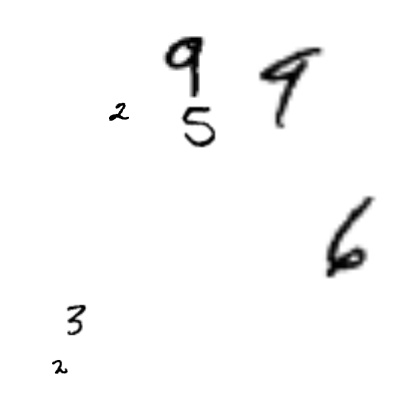 9 9
2 5
6
3
2